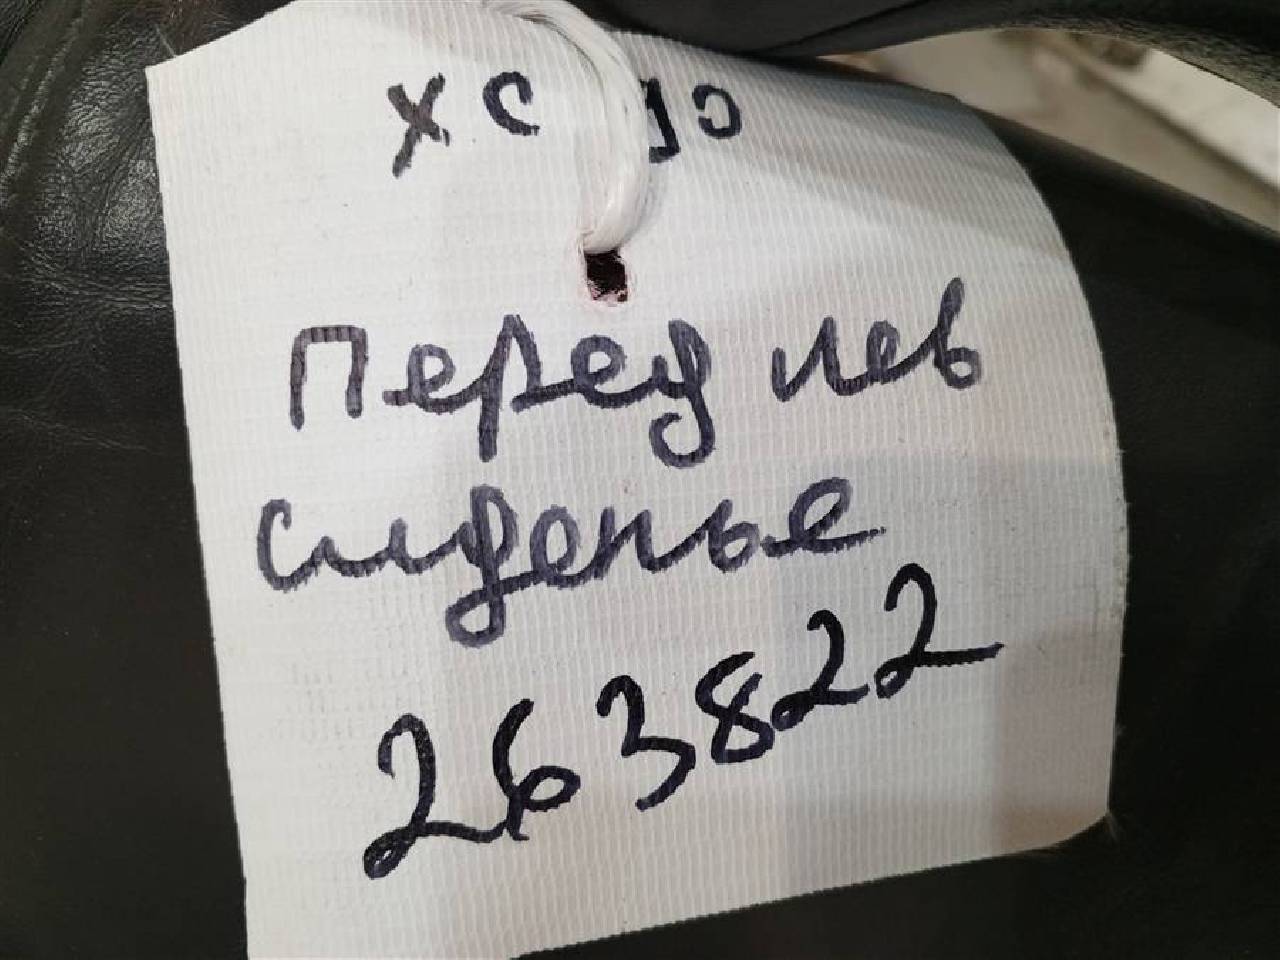 Перед лев
сиденье
263822